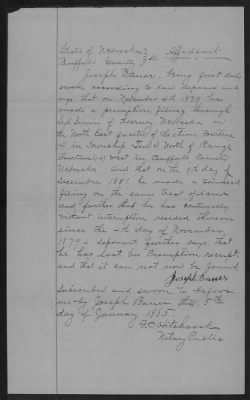 State of Nebraska } Affidavit
Buffalo County } ss.
Joseph Bauer, being first duly
sworn according to law deposes and
says that on November 4th 1879 he
made a preemption filing through
of Kearney Nebraska on
the North East quarter of Section
in Township (10) North of Range
West in Buffalo County
Nebraska. And that on the 9th day of
December 1881 he made a homestead
filing on the same tract of land
and further that he has continually
without interruption resided thereon
since the 4th day of November
1879. deponent further says that
he has lost his Preemption receipt
and that it can not now be found
Joseph Bauer
Subscribed and sworn to before
me by Joseph Bauer this 5th
day of January 1885.
Notary Public